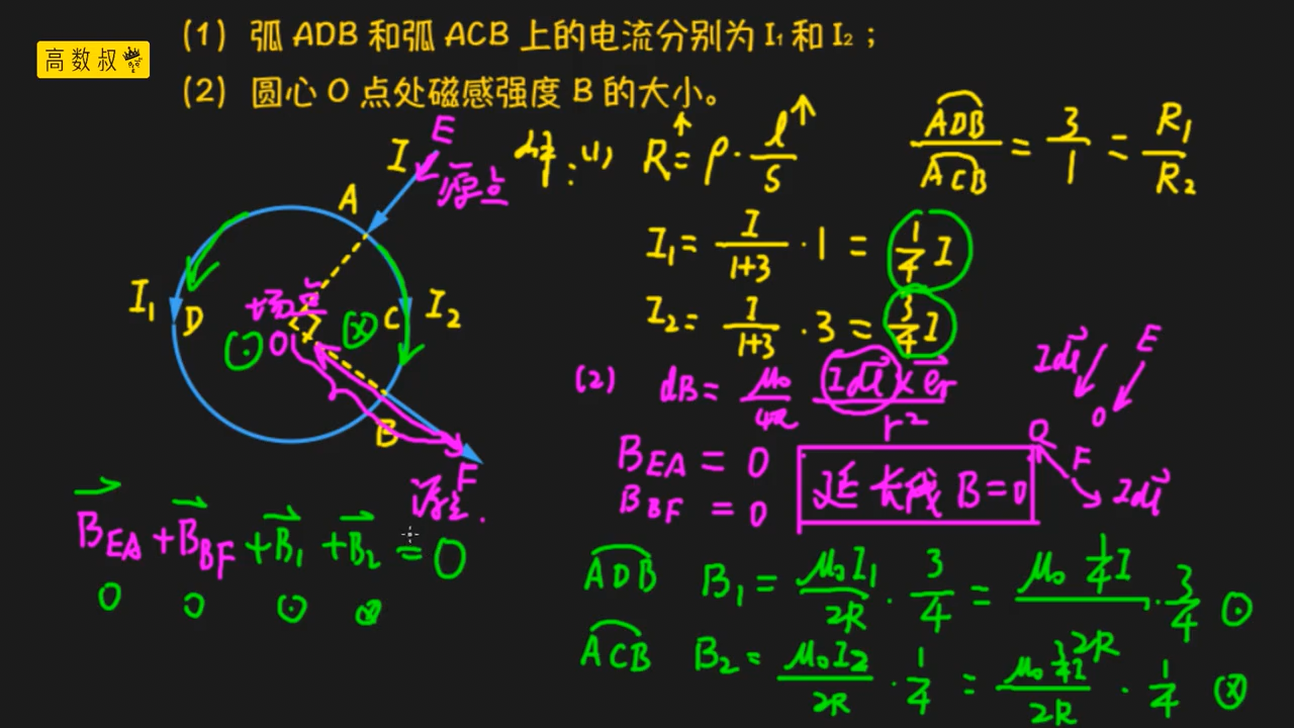 (1) 弧 ADB 和弧 ACB 上的电流分别为 I₁ 和 I₂；
高数叔
(2) 圆心 O 点处磁感强度 B 的大小。
E
I
源点
A
I₁
D
场点
O
C
I₂
B
F
源点
解:(1) R = ρ · l/S
ADB/ACB = 3/1 = R₁/R₂
I₁ = I/(1+3) · 1 = 1/4 I
I₂ = I/(1+3) · 3 = 3/4 I
(2) dB = μ₀/4π Idl × eᵣ / r²
Idl E
O
O
F
Idl
B_EA = 0
B_BF = 0
延长线 B=0
B_EA + B_BF + B₁ + B₂ = 0
0 0 ⊙ ⊗
ADB B₁ = μ₀I₁/2R · 3/4 = μ₀ 1/4 I / 2R · 3/4 ⊙
ACB B₂ = μ₀I₂/2R · 1/4 = μ₀ 3/4 I / 2R · 1/4 ⊗